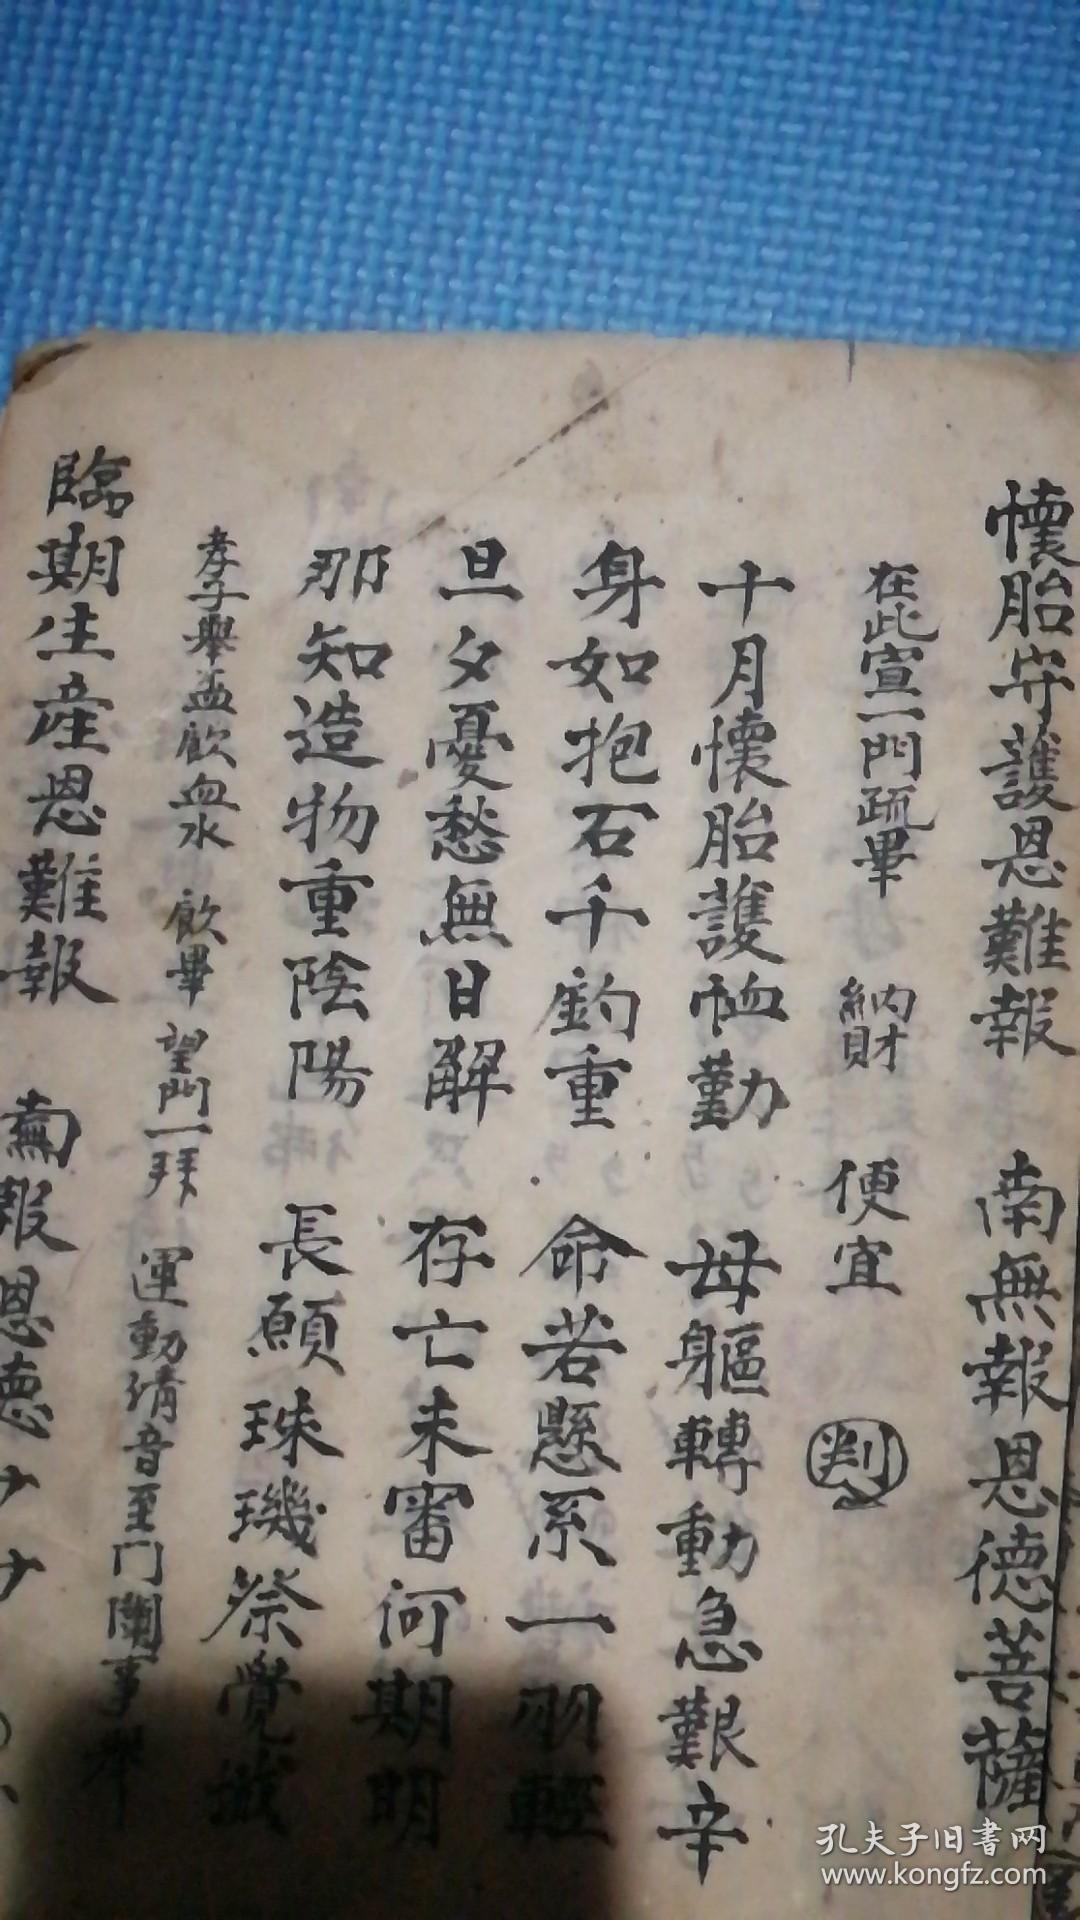 懷胎守護恩難報 南無報恩德菩薩
在此宣一門疏畢 納財 便宜 判
十月懷胎護恤勤 母軀轉動急艱辛
身如抱石千鈞重 命若懸系一羽輕
旦夕憂愁無日解 存亡未審何期明
那知造物重陰陽 長願珠璣祭覺
孝子舉盃飲血水 飲畢 望門一拜 運動清音至门闌事畢
臨期生產恩難報 南無報恩德
孔夫子旧書网
www.kongfz.com